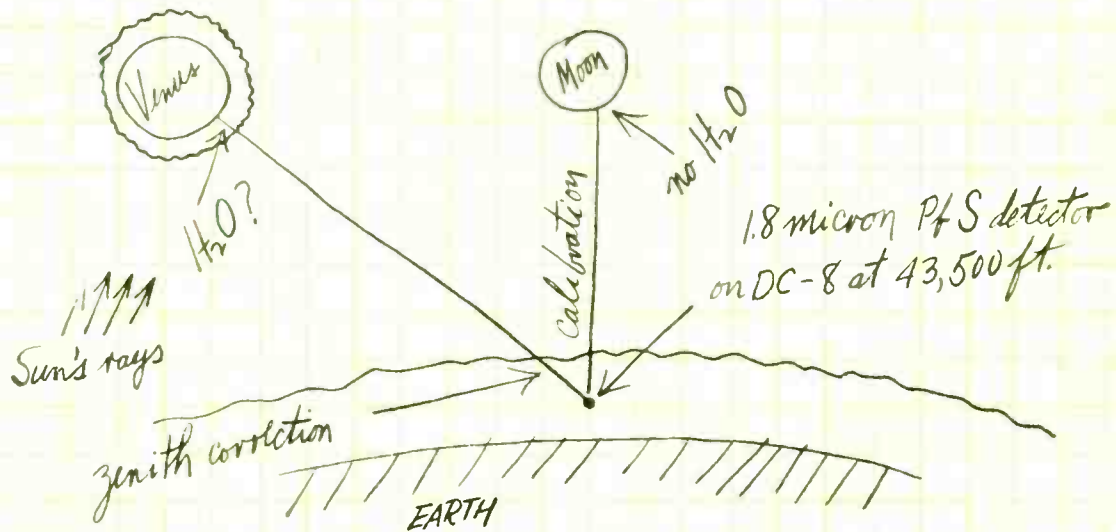 Venus
Moon
H₂O?
no H₂O
calibration
1.8 micron PbS detector
on DC-8 at 43,500 ft.
Sun's rays
zenith correction
EARTH